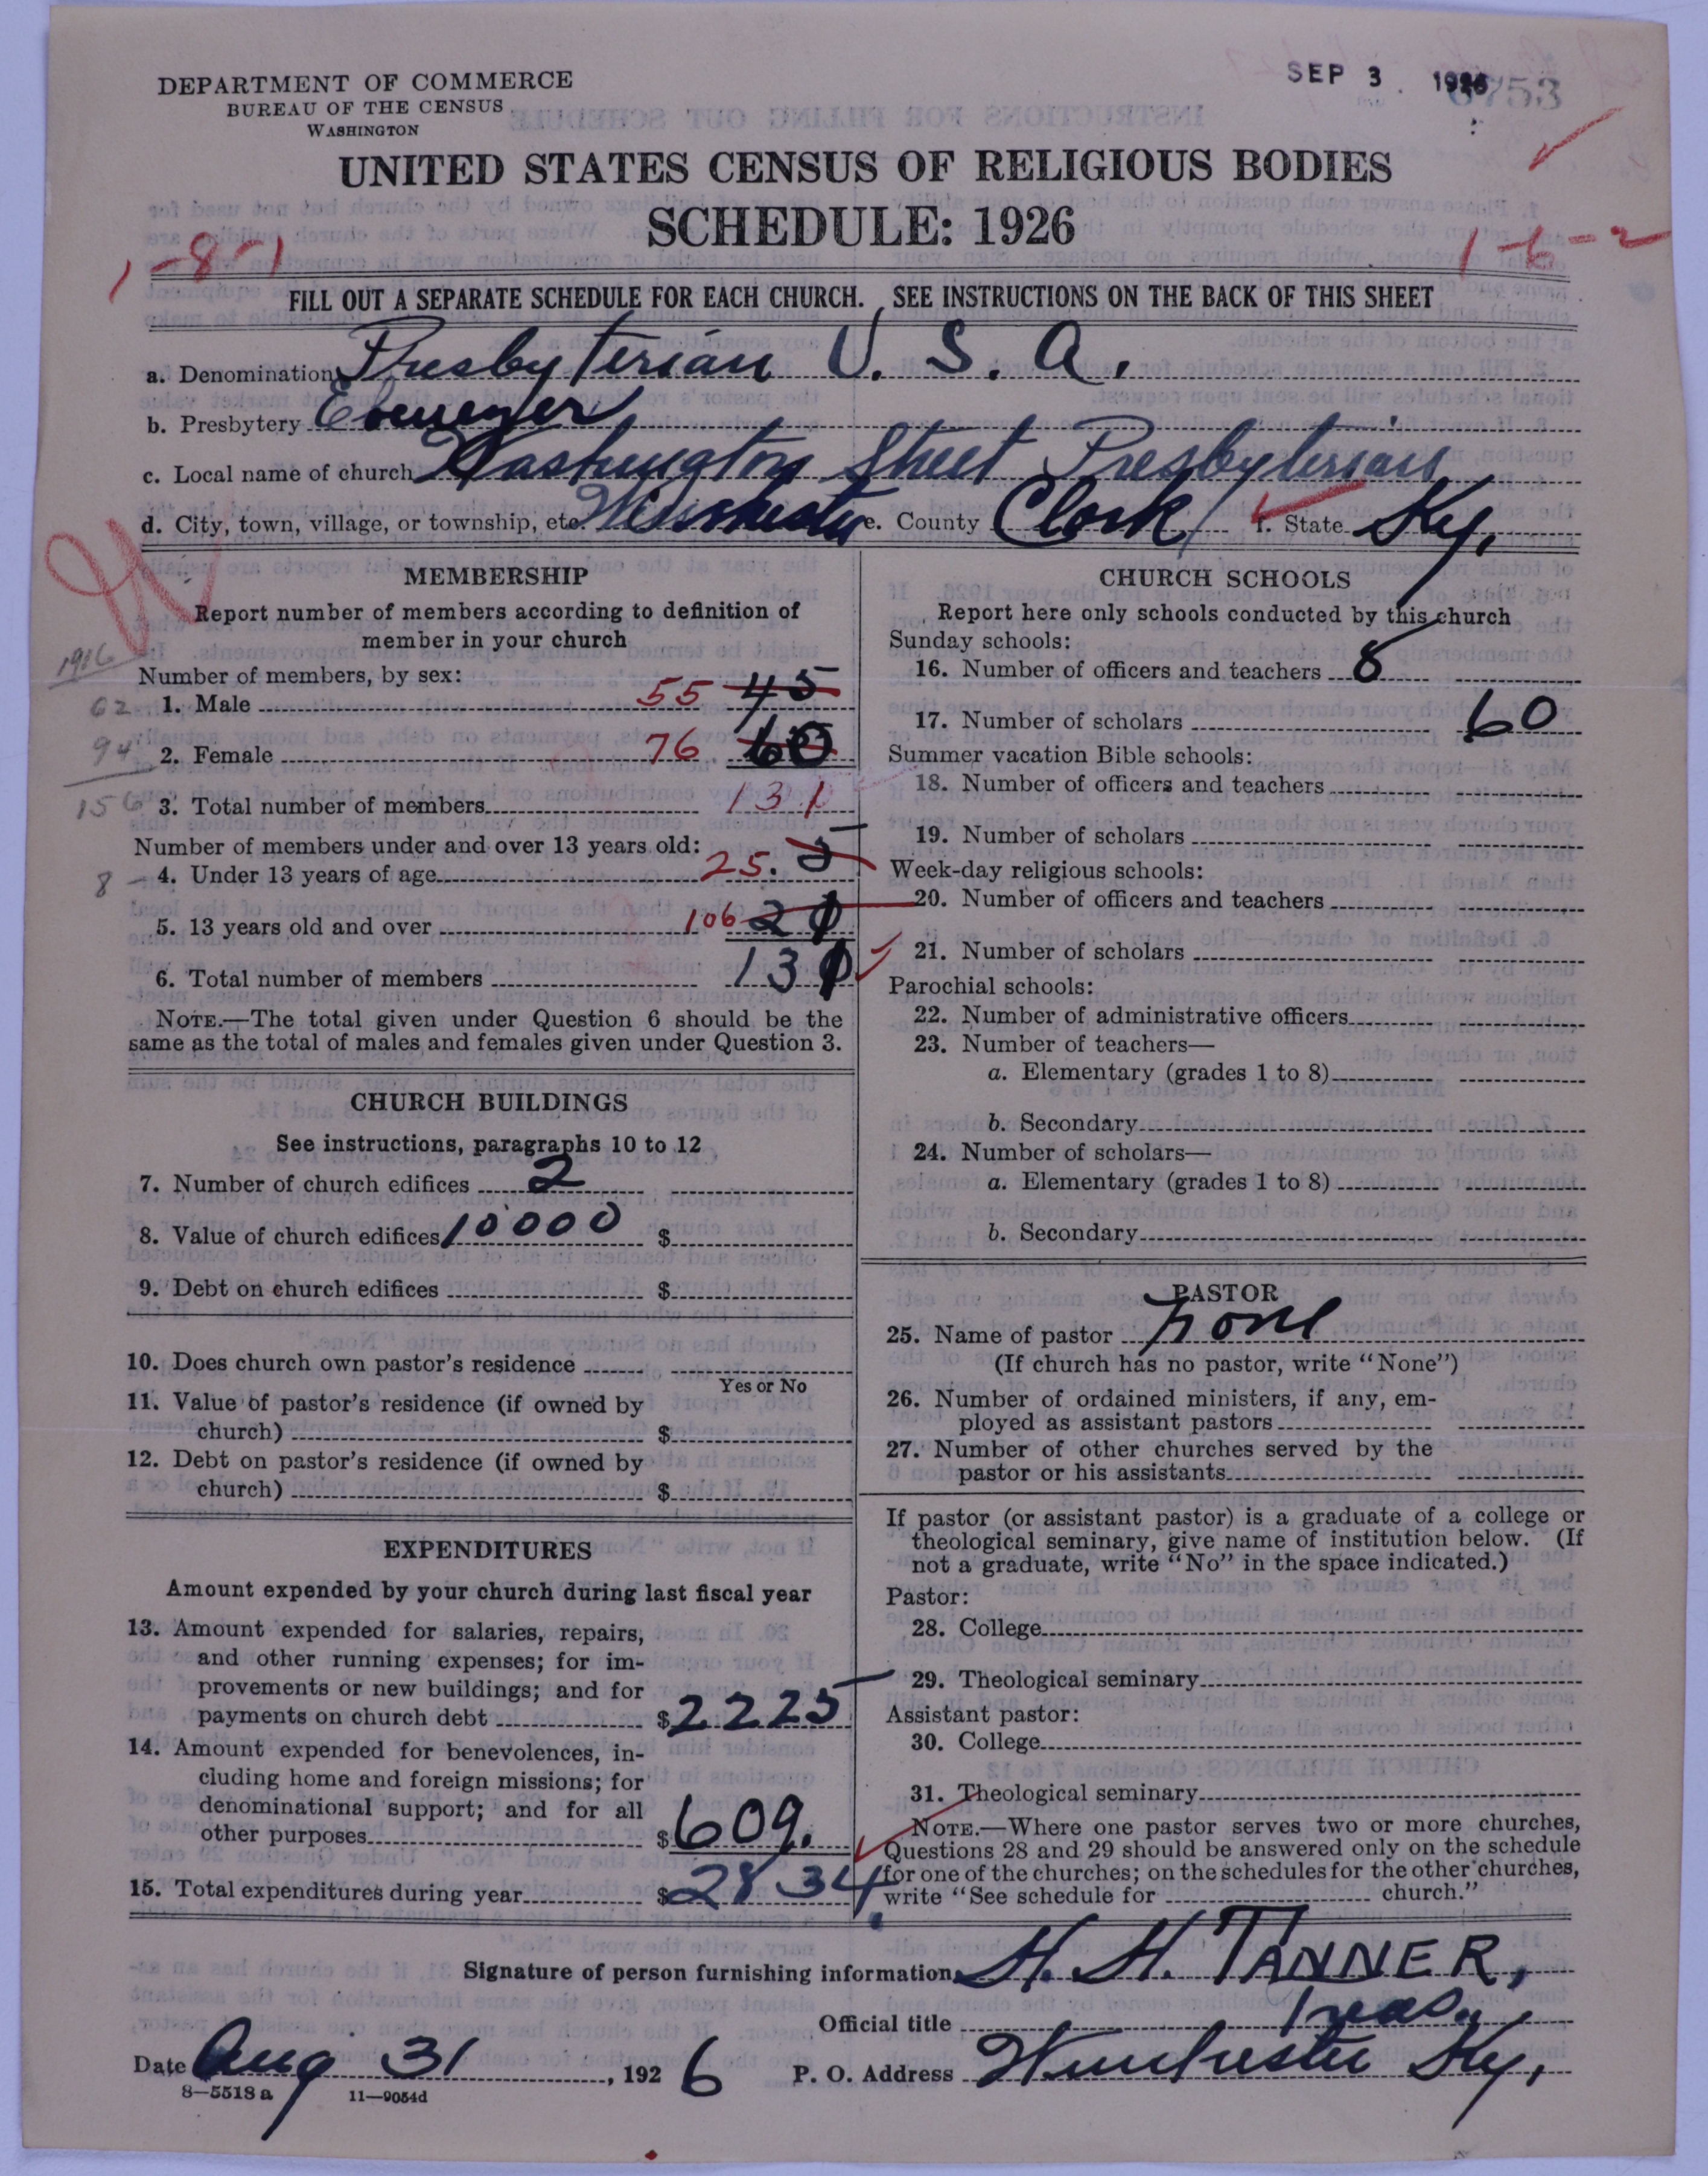 DEPARTMENT OF COMMERCE
BUREAU OF THE CENSUS
WASHINGTON
SEP 3 1926
6753
UNITED STATES CENSUS OF RELIGIOUS BODIES
SCHEDULE: 1926
1-8-1
1-6-2
FILL OUT A SEPARATE SCHEDULE FOR EACH CHURCH. SEE INSTRUCTIONS ON THE BACK OF THIS SHEET
a. Denomination Presbyterian U. S. A.
b. Presbytery Ebenezer
c. Local name of church Washington Street Presbyterian
d. City, town, village, or township, etc. Winchester e. County Clark f. State Ky.
MEMBERSHIP
Report number of members according to definition of
member in your church
1916
Number of members, by sex:
62 1. Male 55 45
94 2. Female 76 60
156 3. Total number of members 131
Number of members under and over 13 years old:
8 – 4. Under 13 years of age 25. 5
5. 13 years old and over 106 21
6. Total number of members 131
NOTE.—The total given under Question 6 should be the
same as the total of males and females given under Question 3.
CHURCH BUILDINGS
See instructions, paragraphs 10 to 12
7. Number of church edifices 2
8. Value of church edifices 10000 $
9. Debt on church edifices $
10. Does church own pastor's residence
Yes or No
11. Value of pastor's residence (if owned by
church) $
12. Debt on pastor's residence (if owned by
church) $
EXPENDITURES
Amount expended by your church during last fiscal year
13. Amount expended for salaries, repairs,
and other running expenses; for im-
provements or new buildings; and for
payments on church debt $2225
14. Amount expended for benevolences, in-
cluding home and foreign missions; for
denominational support; and for all
other purposes $609.
15. Total expenditures during year $2834.
CHURCH SCHOOLS
Report here only schools conducted by this church
Sunday schools:
16. Number of officers and teachers 8
17. Number of scholars 60
Summer vacation Bible schools:
18. Number of officers and teachers
19. Number of scholars
Week-day religious schools:
20. Number of officers and teachers
21. Number of scholars
Parochial schools:
22. Number of administrative officers
23. Number of teachers—
a. Elementary (grades 1 to 8)
b. Secondary
24. Number of scholars—
a. Elementary (grades 1 to 8)
b. Secondary
PASTOR
25. Name of pastor none
(If church has no pastor, write "None")
26. Number of ordained ministers, if any, em-
ployed as assistant pastors
27. Number of other churches served by the
pastor or his assistants
If pastor (or assistant pastor) is a graduate of a college or
theological seminary, give name of institution below. (If
not a graduate, write "No" in the space indicated.)
Pastor:
28. College
29. Theological seminary
Assistant pastor:
30. College
31. Theological seminary
NOTE.—Where one pastor serves two or more churches,
Questions 28 and 29 should be answered only on the schedule
for one of the churches; on the schedules for the other churches,
write "See schedule for church."
Signature of person furnishing information H. H. TANNER,
Official title Treas.
Date Aug 31, 1926 P. O. Address Winchester Ky.
8—5518 a 11—9054d